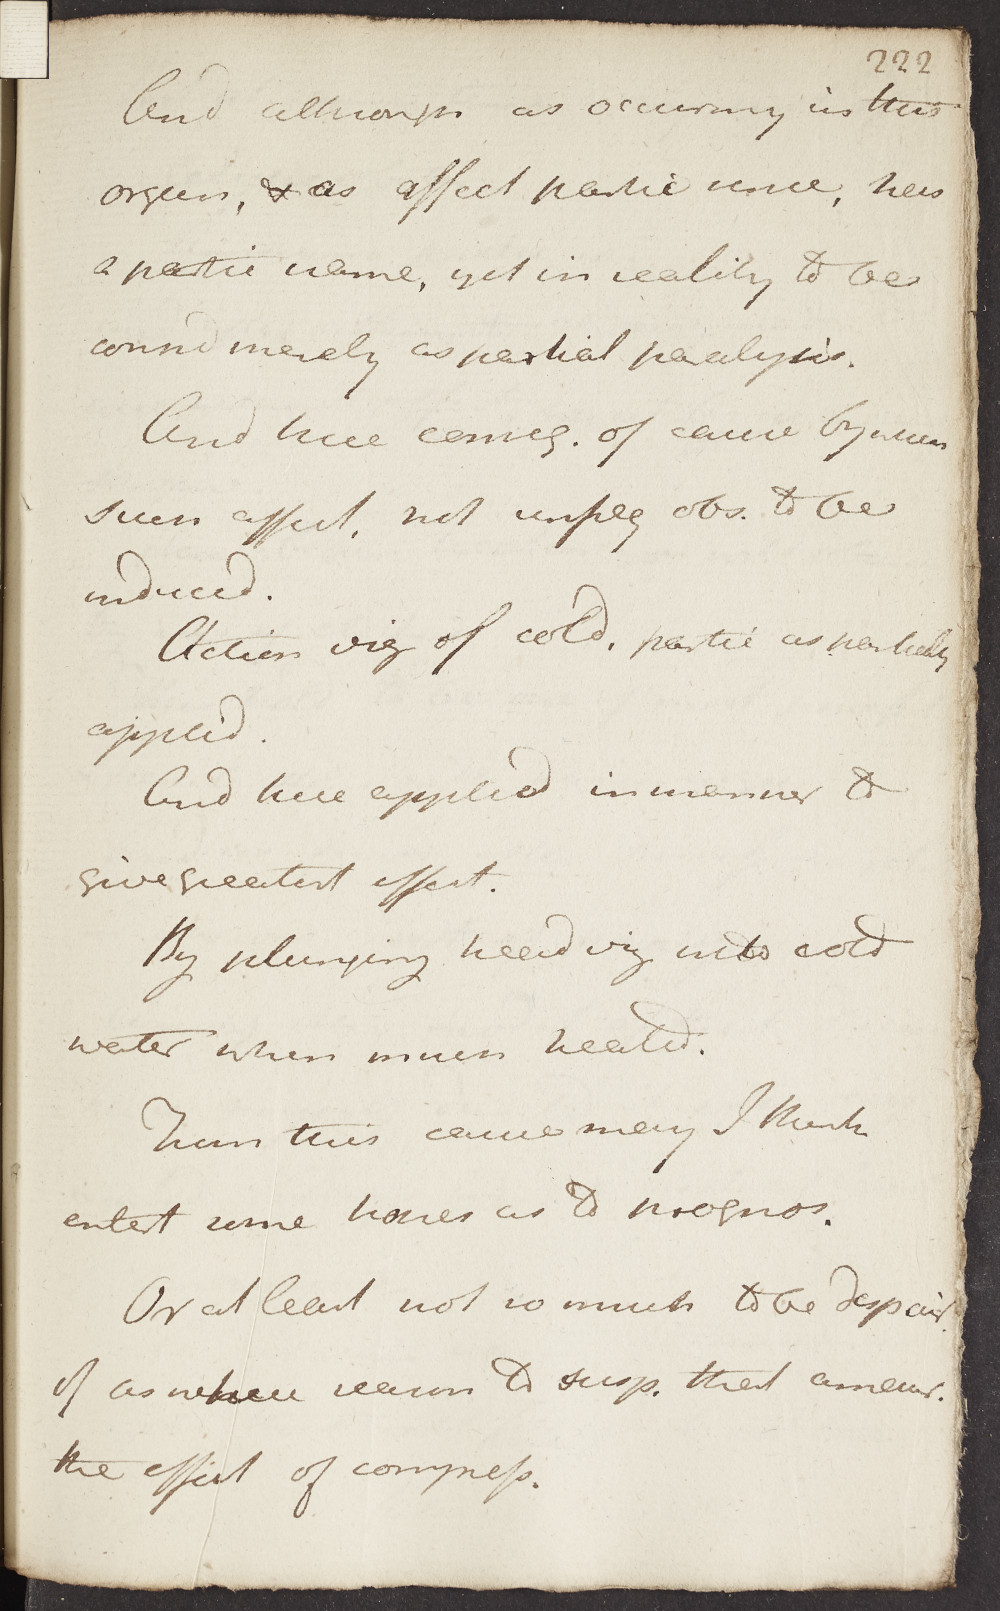 222
And although as occurring in this
organ, & as affect partic nerve, has
a partic name, yet in reality to be
consd merely as partial paralysis.
And here comes. of cause by which
such affect. not unfreq obs. to be
induced.
Action viz of cold. partic as partially
applied.
And here applied in manner to
give greatest effect.
By plunging head viz into cold
water when much heated.
From this cause may I think
entert some hopes as to prognos.
Or at least not so much to be despair.
of as where reason to susp. that amaur.
the effect of compress.